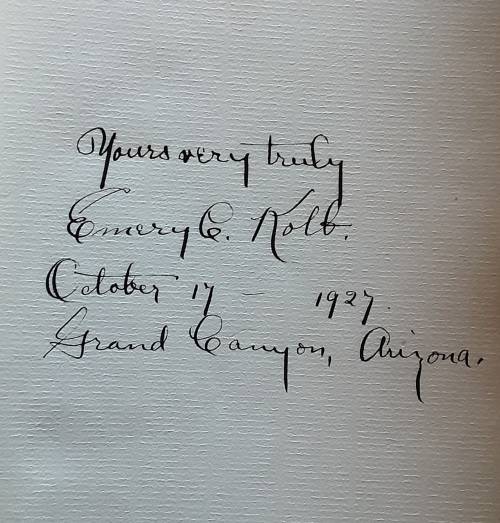 Yours very truly
Emery C. Kolb.
October 17 — 1927.
Grand Canyon, Arizona.